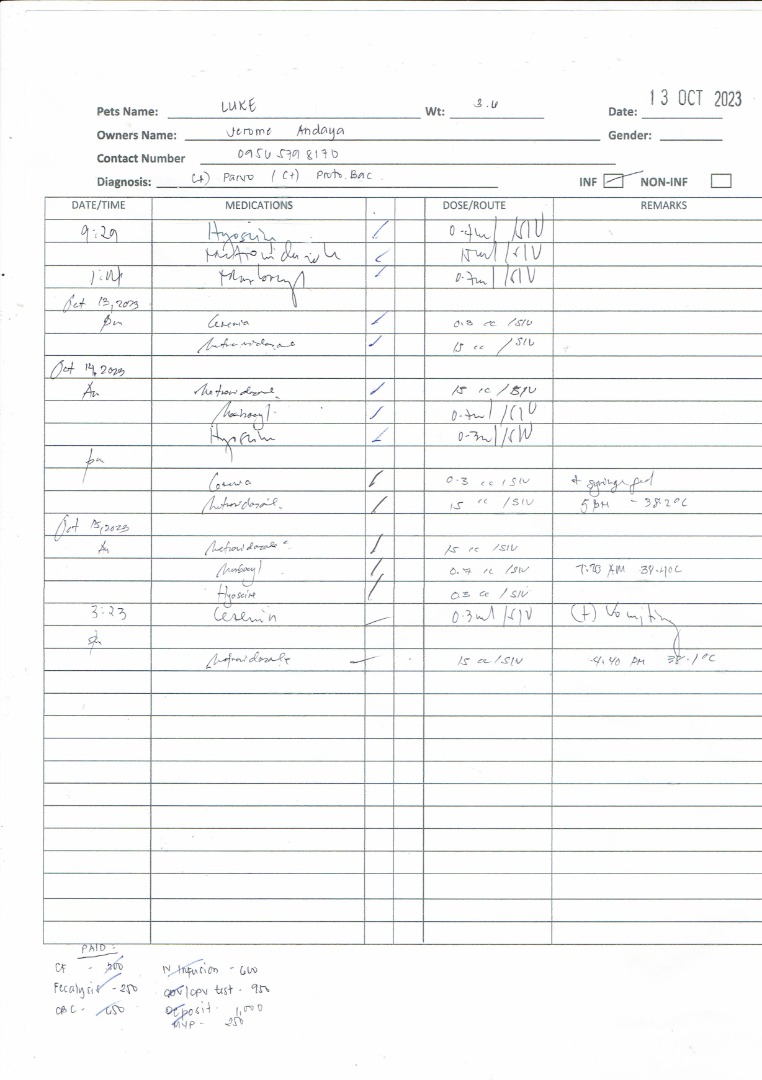 13 OCT 2023
Pets Name: LUKE Wt: 3.4 Date:
Owners Name: Jerome Andaya Gender:
Contact Number 0956 579 8170
Diagnosis: (+) Parvo / (+) Proto. Bac. INF NON-INF
DATE/TIME MEDICATIONS DOSE/ROUTE REMARKS
9:29 Hyoscine 0.4ml /SIV
Metronidazole 15ml /SIV
Marbocyl 0.7ml /SIV
Oct 13, 2023
pm Cerenia 0.3 cc /SIV
Metronidazole 15 cc /SIV
Oct 14, 2023
Am Metronidazole 15 cc / SIV
Marbocyl 0.7ml /SIV
Hyoscine 0.3ml /SIV
pm
Cerenia 0.3 cc /SIV + syringe feed
Metronidazole 15 cc /SIV 5 PM - 38.2°C
Oct 15, 2023
Am Metronidazole 15 cc /SIV
Marbocyl 0.7 cc /SIV AM
Hyoscine 0.3 cc /SIV
3:23 Cerenia 0.3ml /SIV (+) Vomiting
pm
Metronidazole 15 cc /SIV 4:40 PM 38.1°C
PAID:
CF - IV Infusion - 600
Fecalysis - 250 CDV/CPV test - 950
CBC - 650 Deposit - 1,000
250